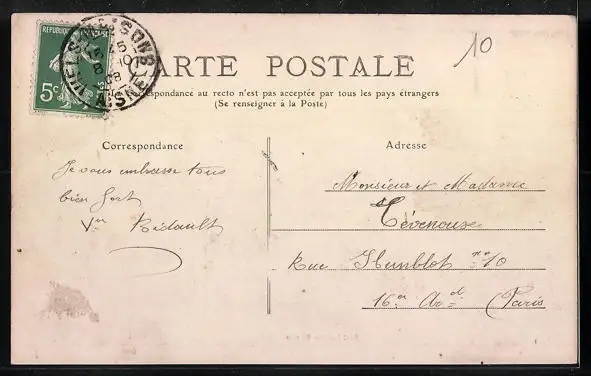 RÉPUBLIQUE
5c
AISNE
10
CARTE POSTALE
respondance au recto n'est pas acceptée par tous les pays étrangers
(Se renseigner à la Poste)
Correspondance
Adresse
Je vous embrasse tous
bien fort
Vve Bidault
Monsieur et Madame
Tévenoux
Rue Humblot no 10
16e Ard Paris